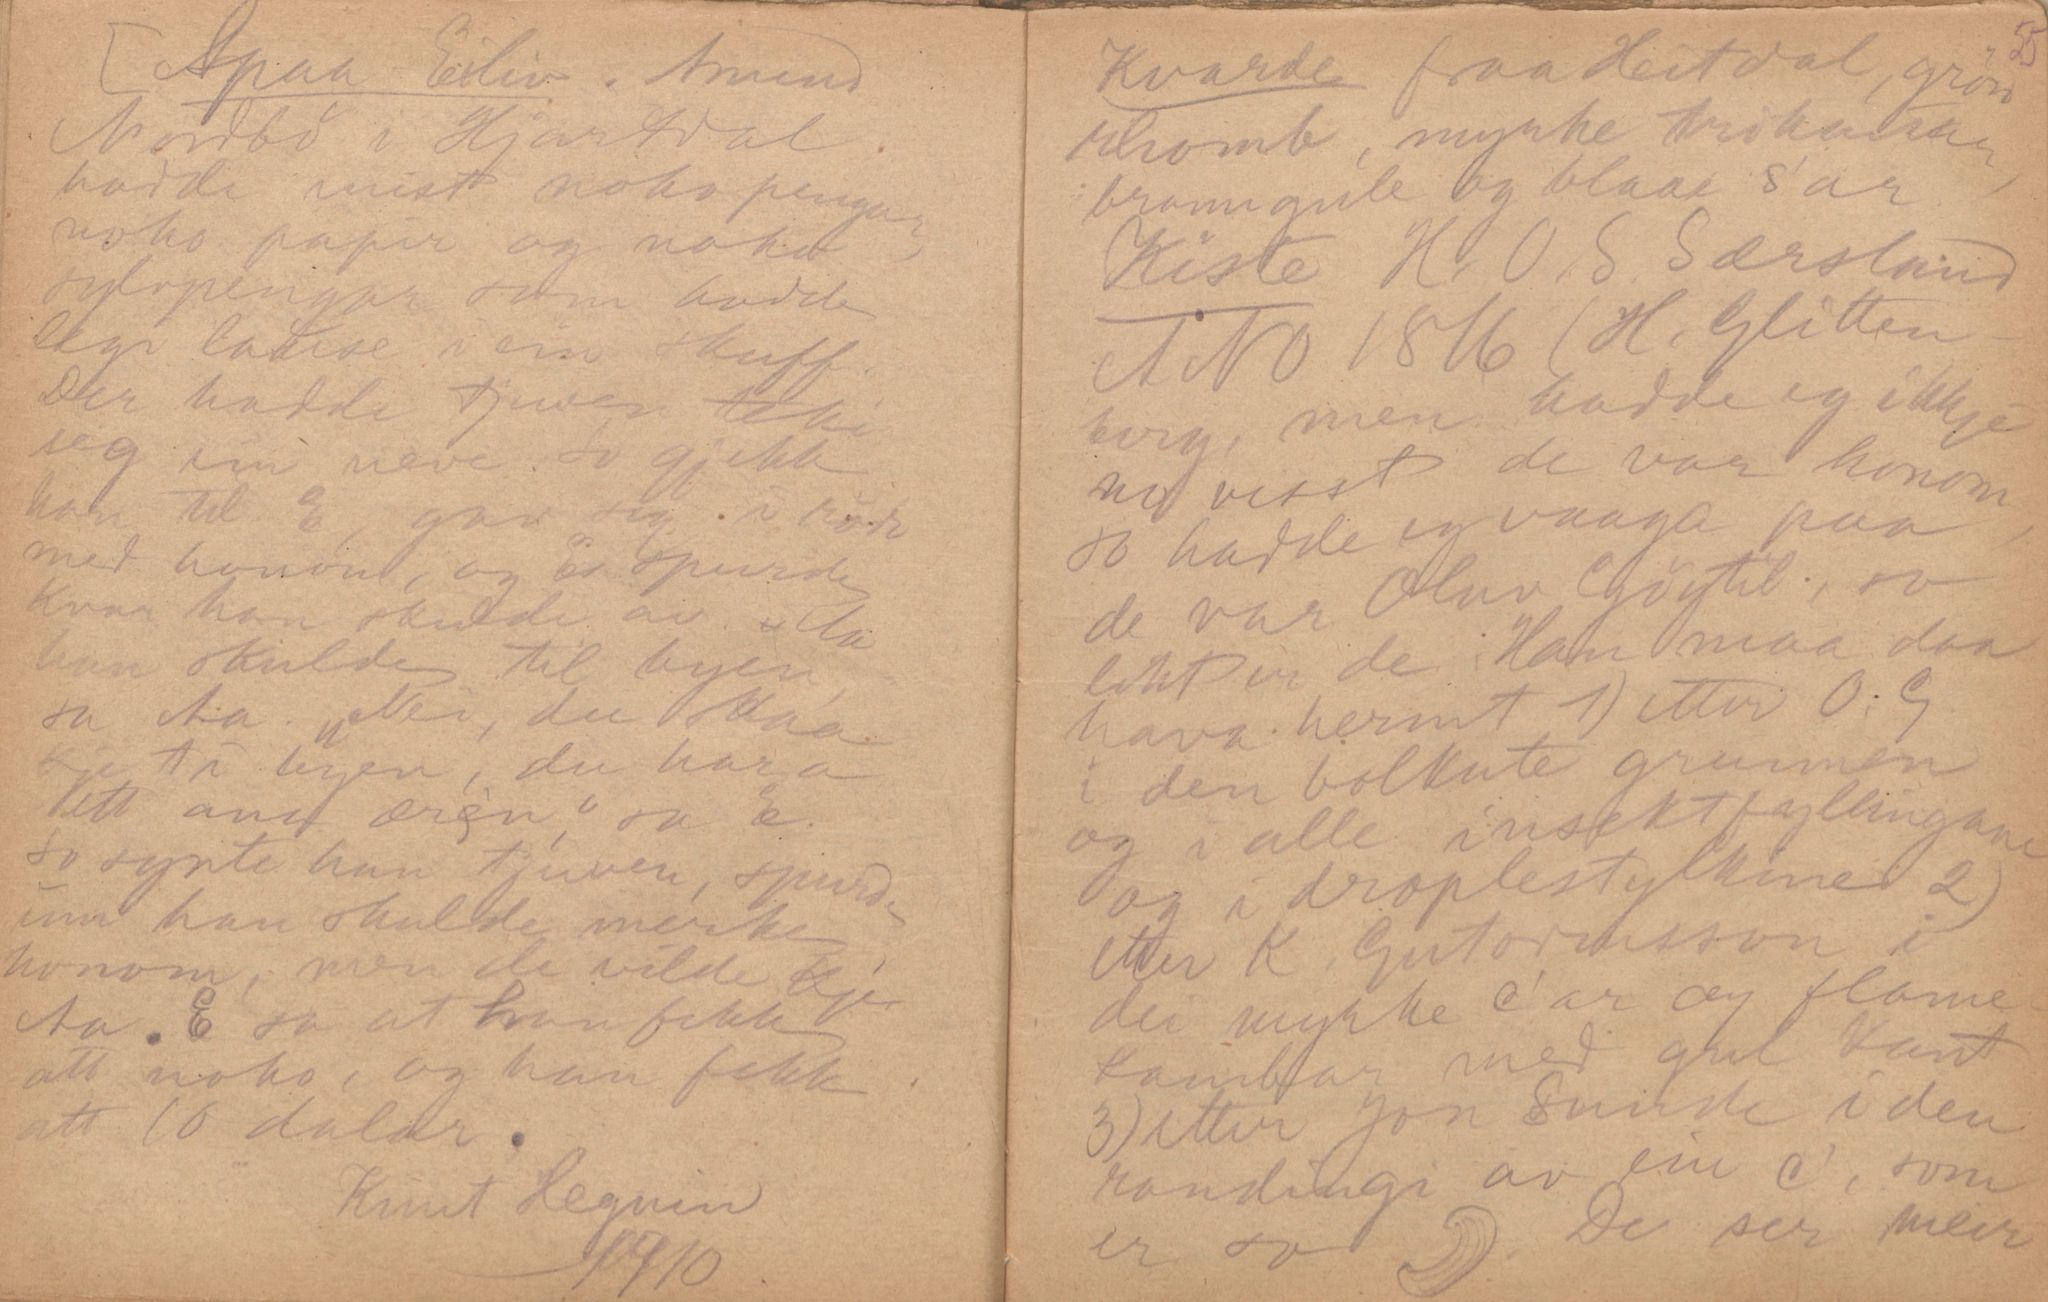 [Spaa Eiliv. Amund
Nordbö i Hjartdal
hadde mist noko pengar,
noko papir og noko
sylvpengar som hadde
legi lause i ein skuff.
Der hadde tjuven teki
seg ein neve. So gjekk
han til E, gav seg i röde
med honom, og E. spurde
kvar han skulde av. Aa
han skulde til byen,
sa Aa. "Nei, du skaa
kje ti byen, du har a
lett anna æren," sa E.
So synte han tjuven, spurde
um han skulde merke
honom, men de vilde kje
Aa. E sa at han fekk
att noko, og han fekk
att 10 dalar.
Knut Hegvin
1910
55
Kvarde fraa Heitdal, grön
rhomb, myrke trikantar,
brunngule og blaae s'ar
Kiste H. O. S. Særsland
ANO 1816 (H. Glitten-
berg, men hadde eg ikkje
no visst de var honom,
so hadde eg vaaga paa
de var Olav Göytil, so
likt er de. Han maa daa
hava hermt 1) etter O. G
i den bolkute grunnen
og i alle insektfyllingane
og i droplestylkine 2)
etter K. Gutormsson i
dei myrke c'ar og flame-
kambar med gul kant
3) etter Jon Sunde i den
randingi av ein c', som
er so . De ser meir